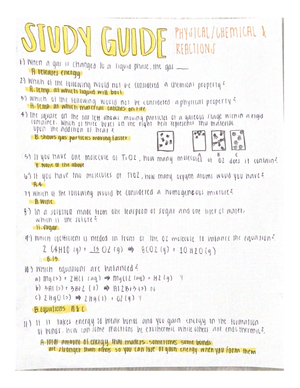 STUDY GUIDE PHYSICAL/CHEMICAL &
REACTIONS
1) When a gas is changed to a liquid phase, the gas ___
A. releases energy
2) Which of the following would not be considered a chemical property?
A. temp at which liquid will boil
3) Which of the following would not be considered a physical property?
4) The square on the far left shows moving particles of a gaseous
upon the addition of heat?
B. shows gas particles moving faster
5) If you have one molecule of TiO2, how many molecules of O2 does it contain?
6) If you have two molecules of TiO2, how many oxygen atoms would you have?
A. 4
7) Which of the following would be considered a homogeneous mixture?
8) In a solution made from one teaspoon of sugar and one liter of water,
which is the solute?
sugar
9) Which coefficient is needed in front of the O2 molecule to balance the equation?
2 C4H10 (g) + 13 O2 (g) → 8CO2 (g) + 10 H2O (g)
B. 13
10) Which equations are balanced?
a) Mg(s) + 2HCl (aq) → MgCl2 (aq) + H2 (g) Y
B. equations
11) If it takes energy to break bonds and you gain energy in the formation
of bonds, how can some reactions be exothermic while others are endothermic?
amount of energy that matters sometimes some bonds
are stronger than others so you can net gain energy when you form them